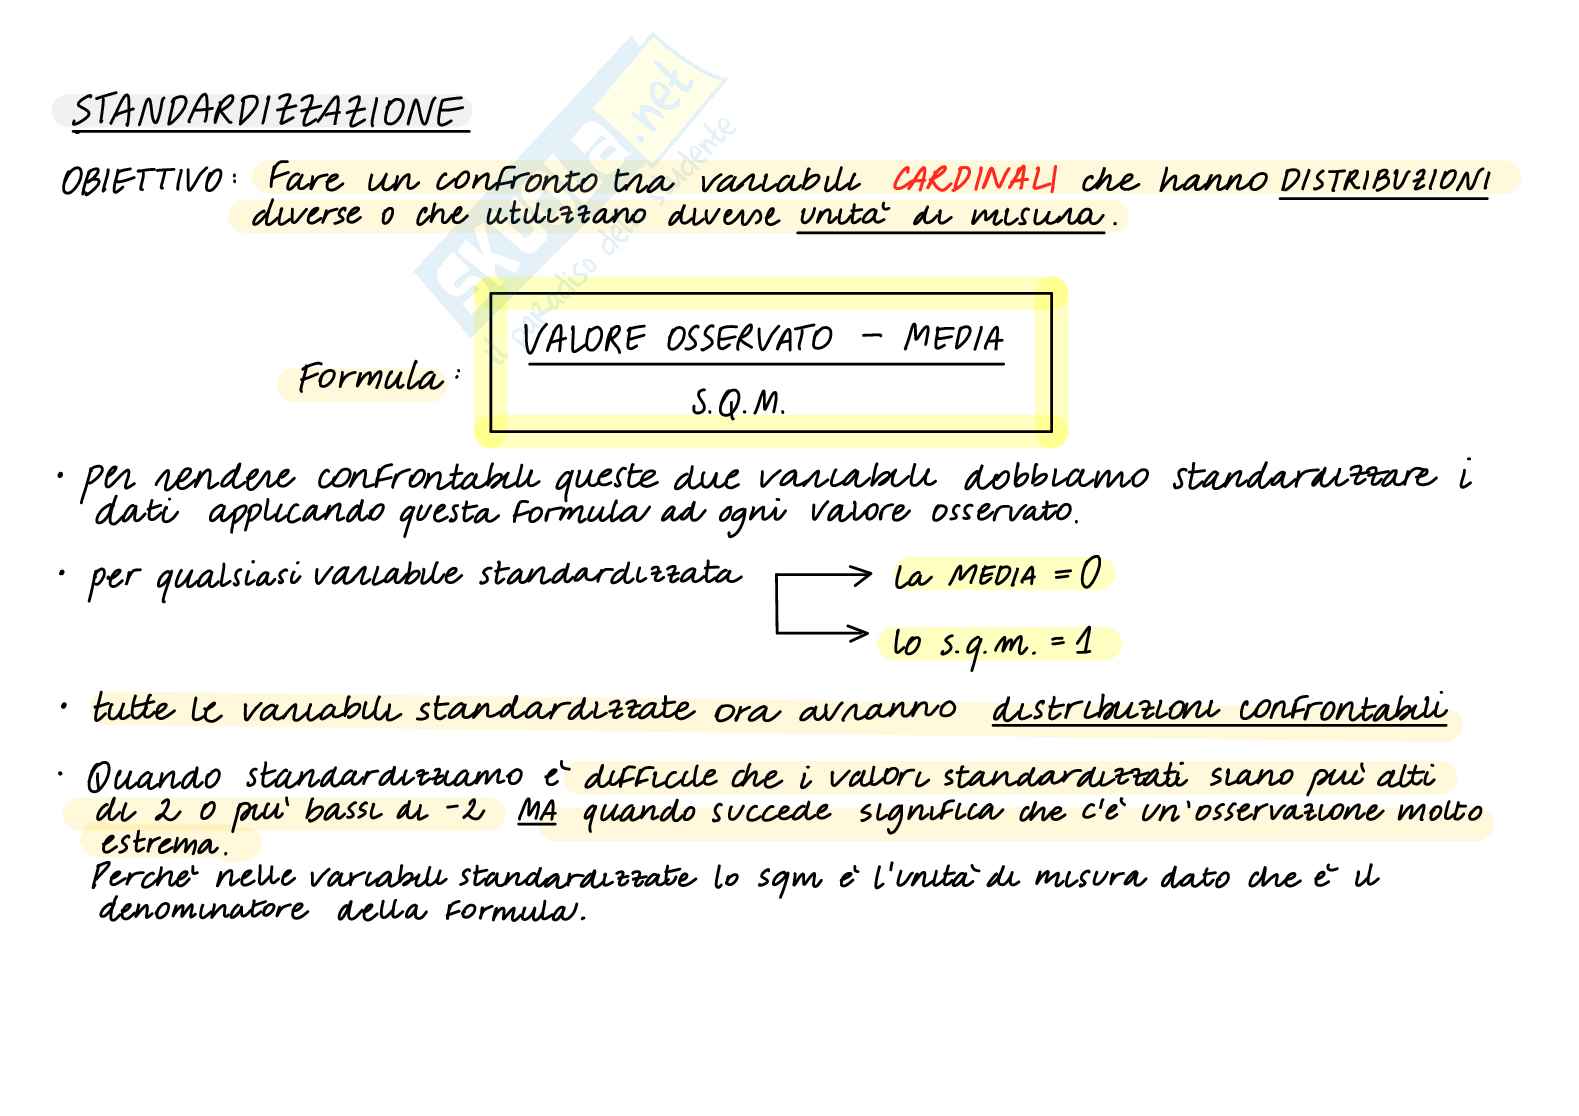 STANDARDIZZAZIONE
OBIETTIVO: Fare un confronto tra variabili CARDINALI che hanno DISTRIBUZIONI
diverse o che utilizzano diverse unità di misura.
Formula: VALORE OSSERVATO - MEDIA
S.Q.M.
• per rendere confrontabili queste due variabili dobbiamo standardizzare i
dati applicando questa formula ad ogni valore osservato.
• per qualsiasi variabile standardizzata → la MEDIA = 0
→ lo s.q.m. = 1
• tutte le variabili standardizzate ora avranno distribuzioni confrontabili
• Quando standardizziamo è difficile che i valori standardizzati siano più alti
di 2 o più bassi di -2 MA quando succede significa che c'è un'osservazione molto
estrema.
Perchè nelle variabili standardizzate lo sqm è l'unità di misura dato che è il
denominatore della formula.
SKUOLA.net
il paradiso dello studente